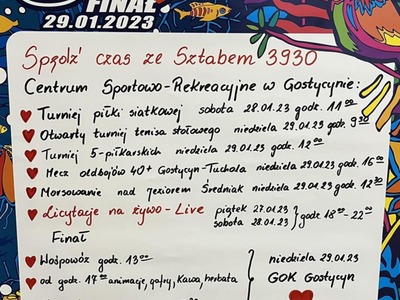 FINAŁ
29.01.2023
Spędź czas ze Sztabem 3930
Centrum Sportowo-Rekreacyjne w Gostycynie:
Turniej piłki siatkowej sobota 28.01.23 godz. 11⁰⁰
Otwarty turniej tenisa stołowego niedziela 29.01.23 godz. 9³⁰
Turniej 5-piłkarskich niedziela 29.01.23 godz. 12⁰⁰
Mecz oldbojów 40+ Gostycyn-Tuchola niedziela 29.01.23 godz. 16⁰⁰
Morsowanie nad jeziorem Średniak niedziela 29.01.23 godz. 12³⁰
Licytacje na żywo-Live piątek 27.01.23
sobota 28.01.23 godz 18⁰⁰-22⁰⁰
Finał
Hospowóz godz. 13⁰⁰
od godz. 17⁰⁰ animacje, gofry, kawa, herbata
niedziela 29.01.23
GOK Gostycyn